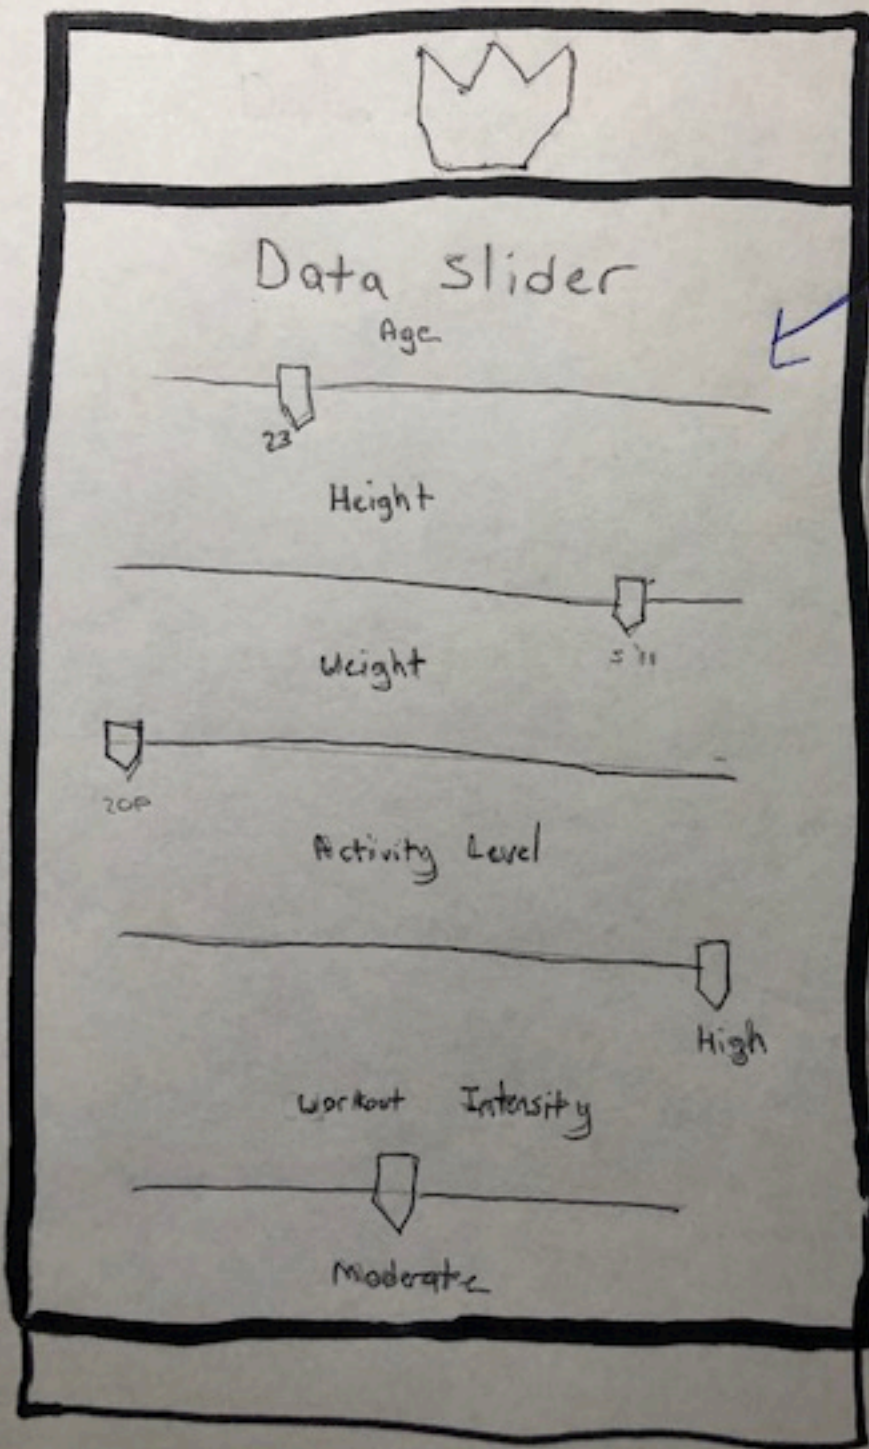 Data Slider
Age
23
Height
5'11
Weight
Activity Level
High
Workout Intensity
Moderate